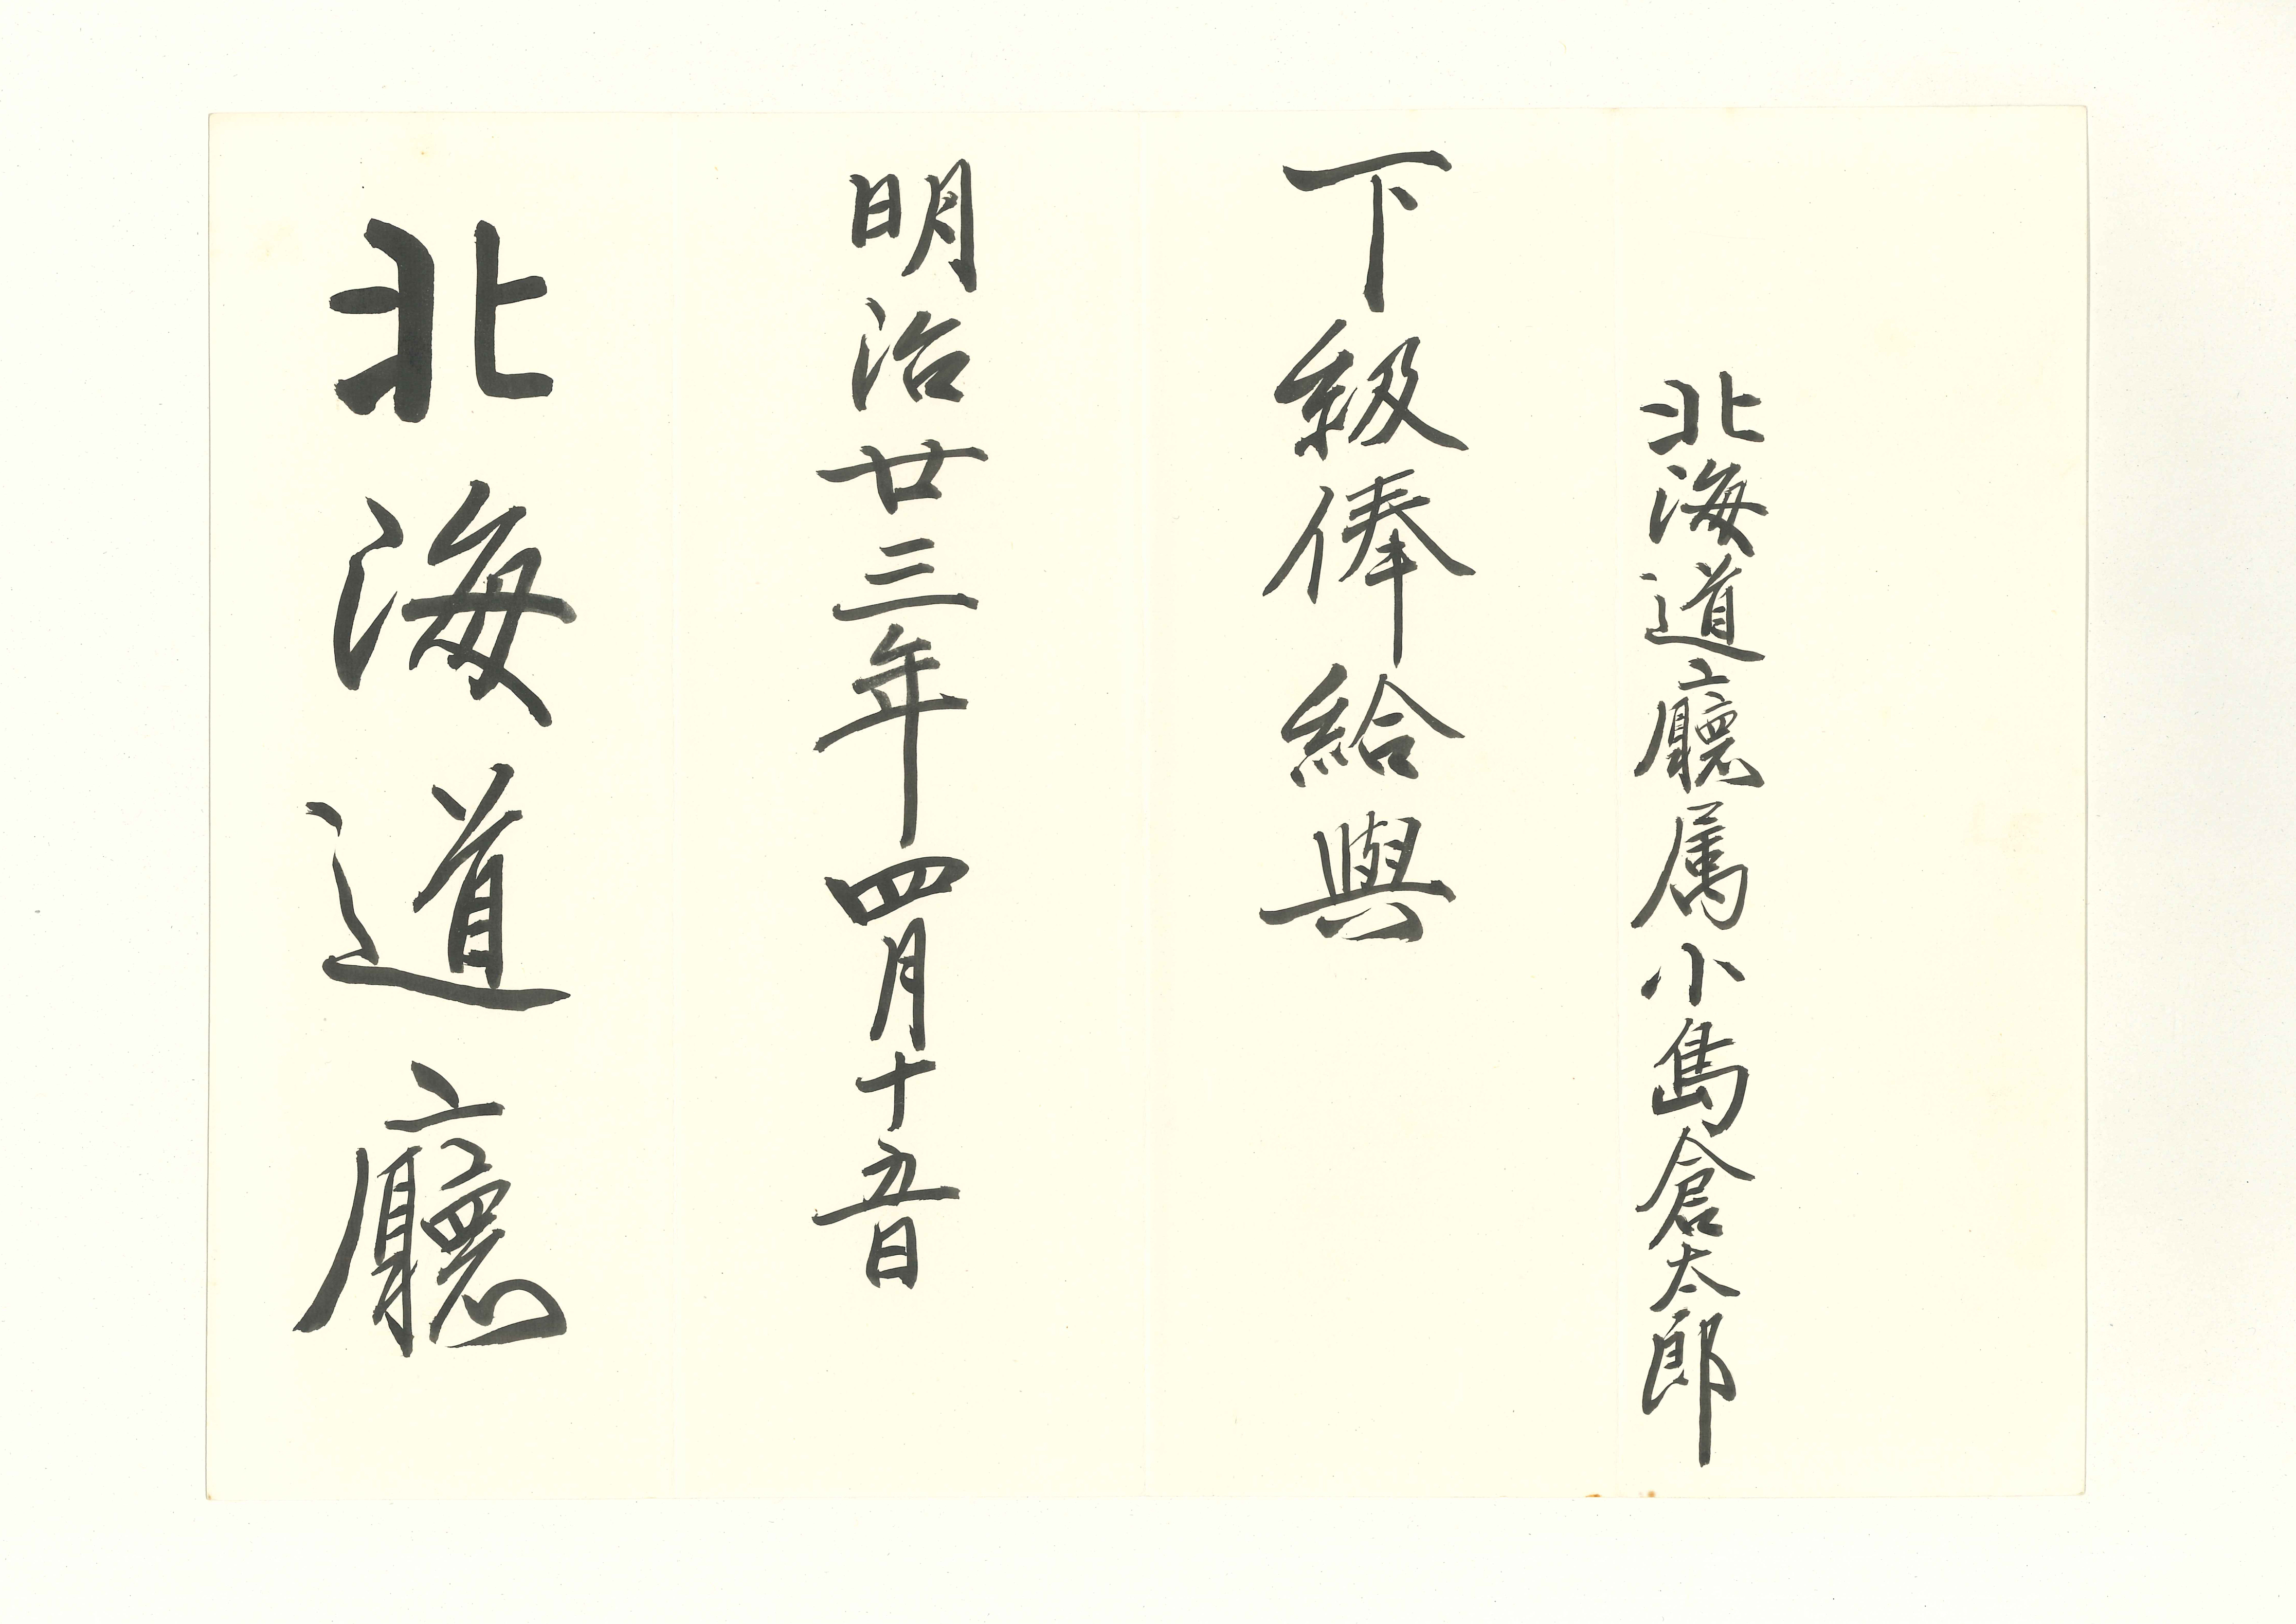 北海道廳属小島倉太郎
下級俸給與
明治廿三年四月十五日
北海道廳